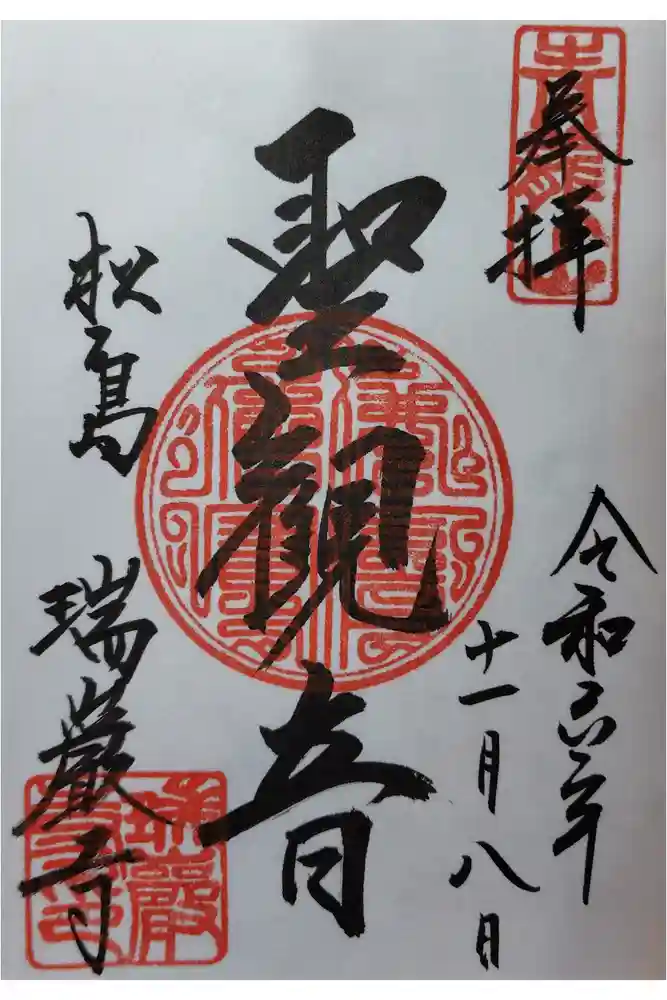 奉拝
令和六年
十一月八日
聖観音
松島
瑞巌寺